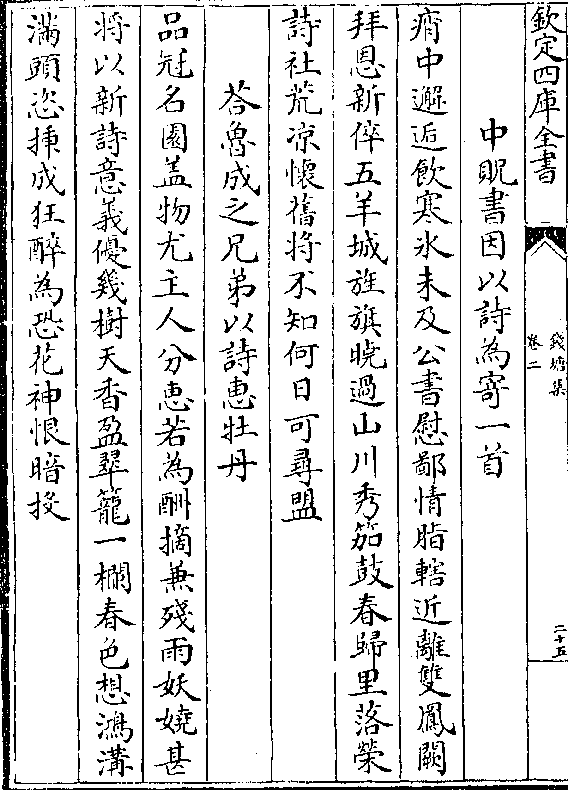 欽定四庫全書
錢塘集
卷二
二十五
中貺書因以詩為寄一首
痟中邂逅飲寒氷未及公書慰鄙情脂轄近離雙鳳闕
拜恩新倅五羊城旌旗曉過山川秀笳鼓春歸里落榮
詩社荒凉懷舊將不知何日可尋盟
荅魯成之兄弟以詩惠牡丹
品冠名園盖物尤主人分惠若為酬摘兼殘雨妖嬈甚
將以新詩意義優幾樹天香盈翠籠一欄春色想鴻溝
滿頭恣揷成狂醉為恐花神恨暗投